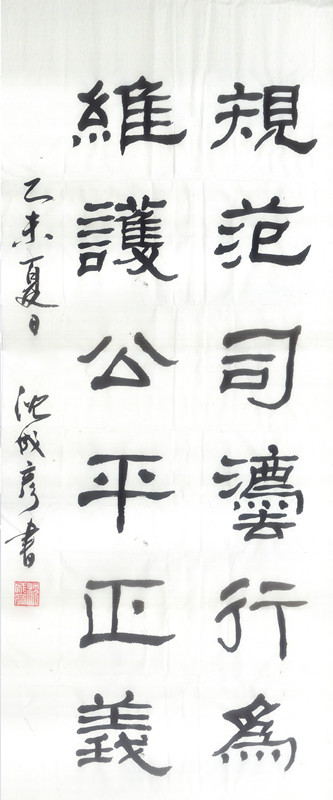 規范司灋行為
維護公平正義
乙未夏日 沈成彥書